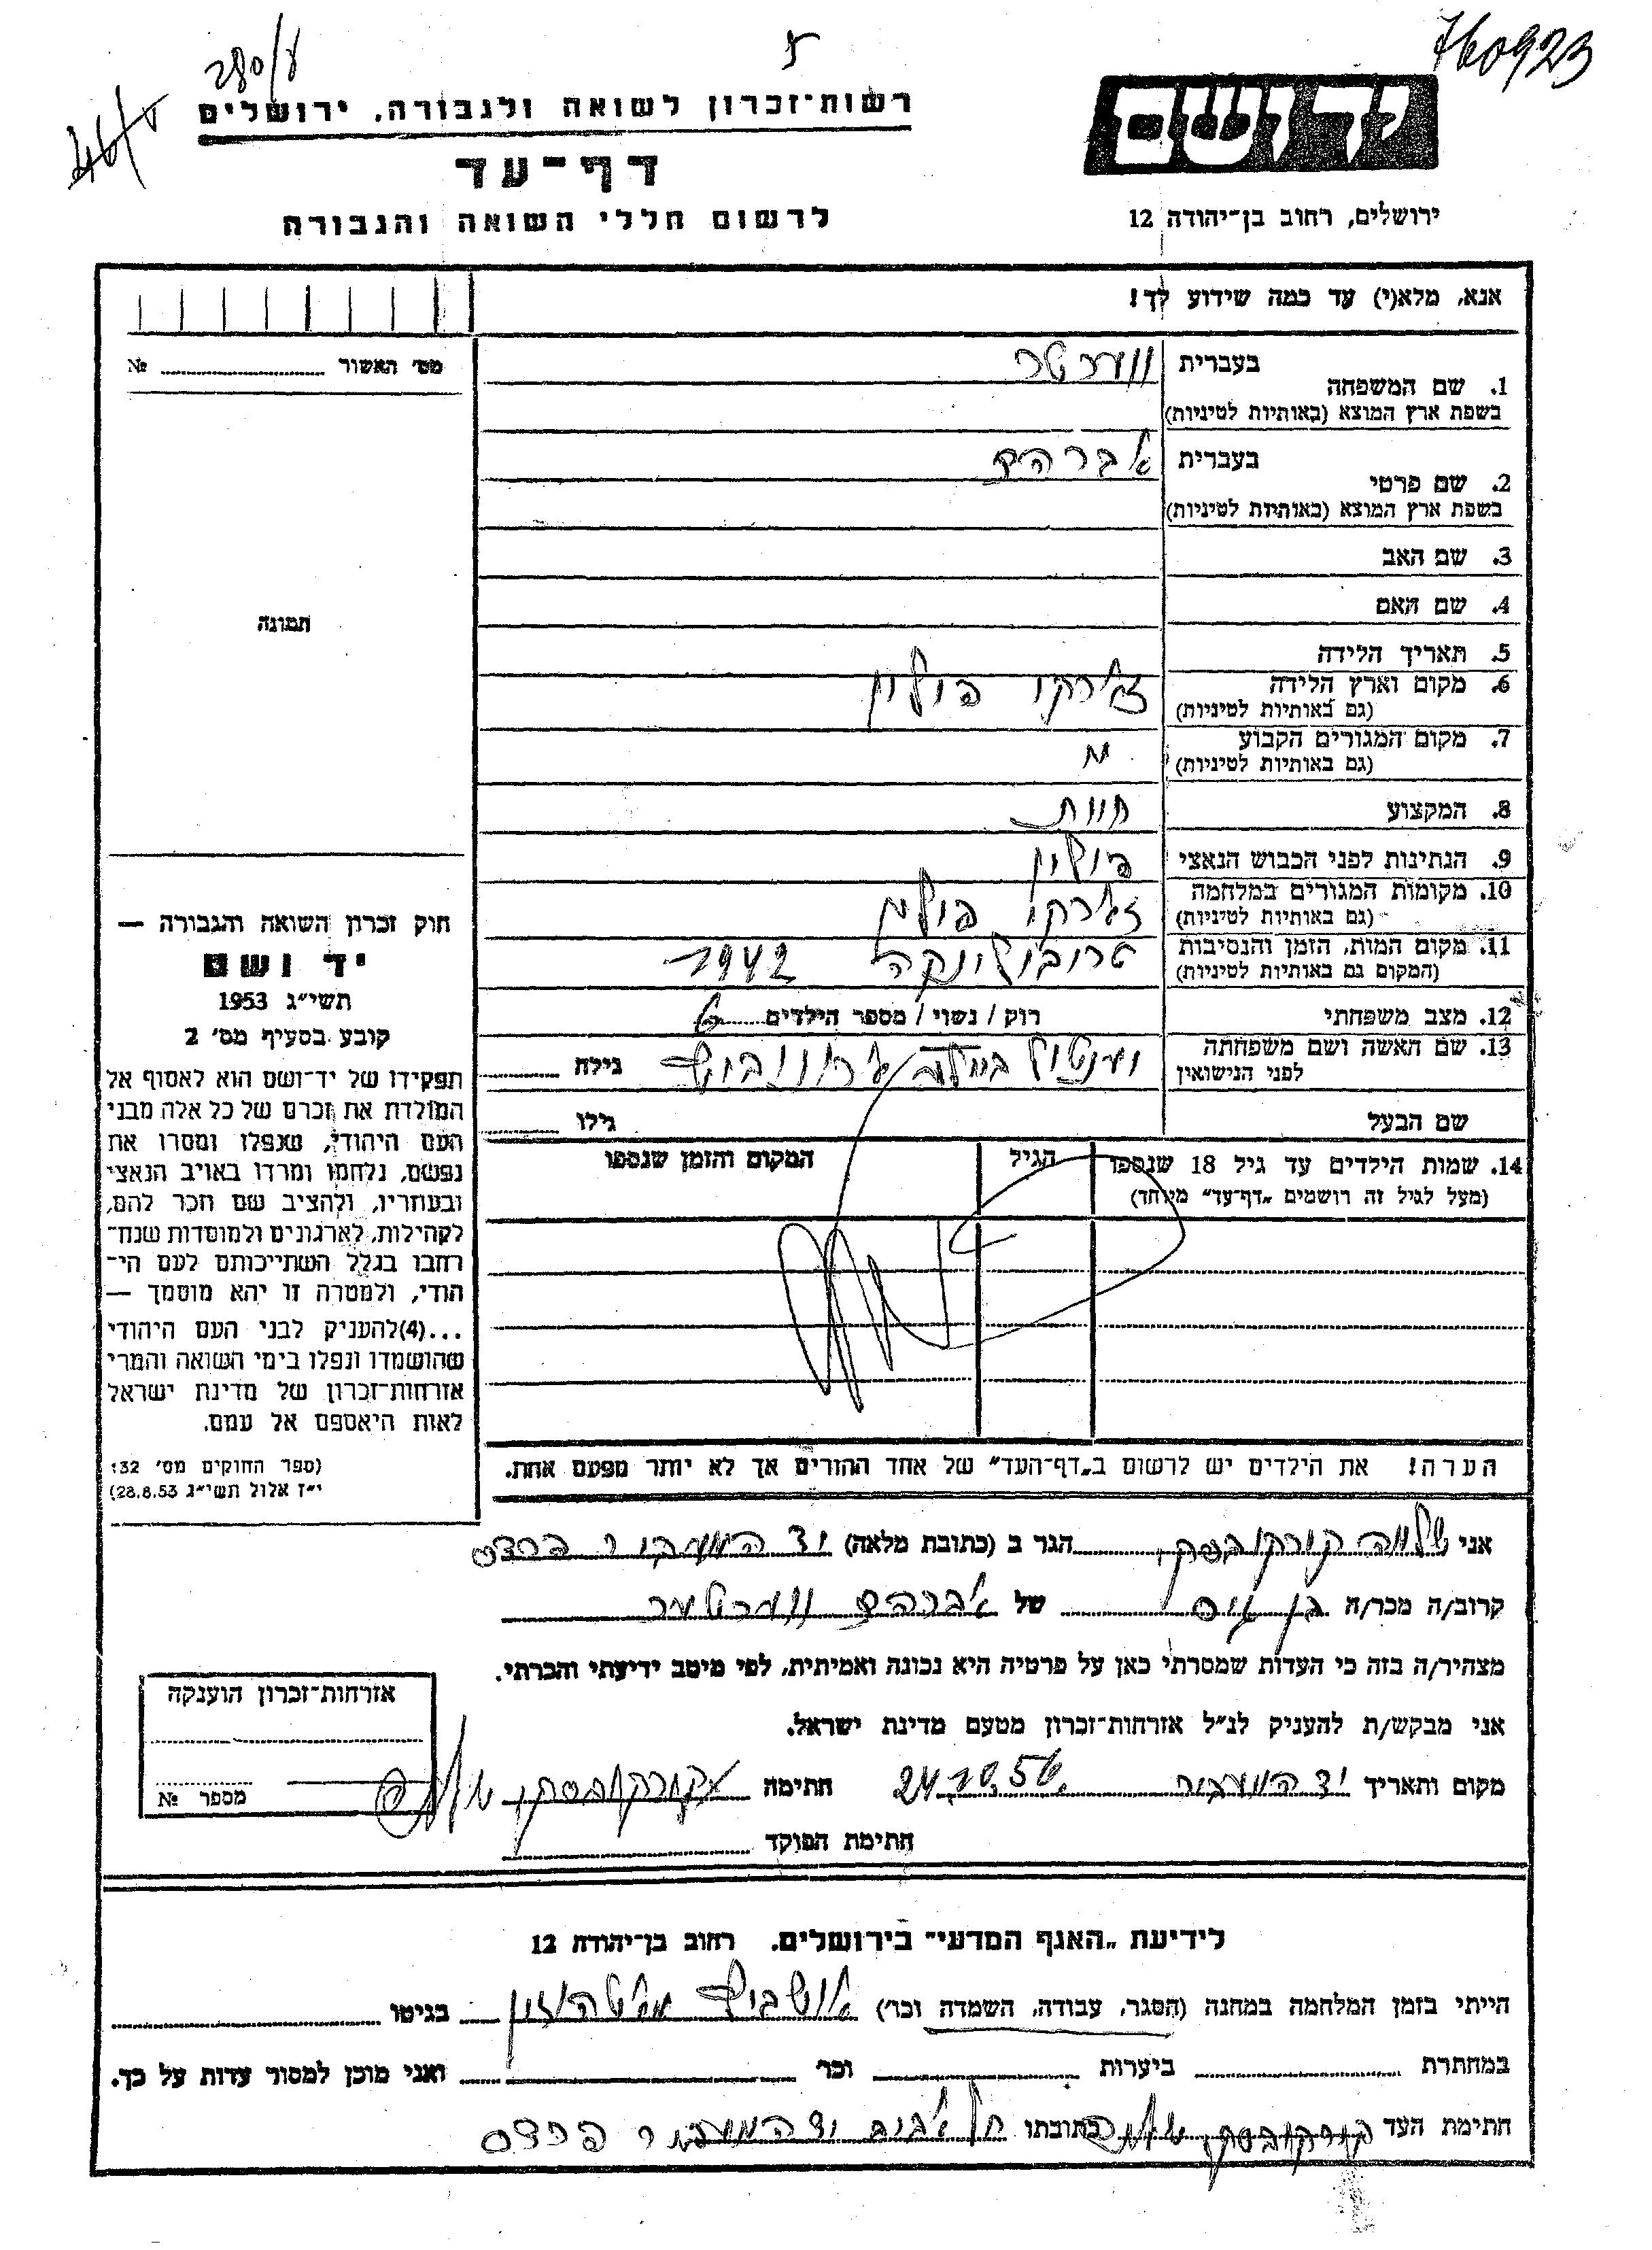 760923
280/8
5
46/5
ידושם
ירושלים, רחוב בן־יהודה 12
רשות־זכרון לשואה ולגבורה, ירושלים
דף־עד
לרשום חללי השואה והגבורה
אנא, מלא(י) עד כמה שידוע לך!
מס׳ האשור № 
1. שם המשפחה
בעברית
בשפת ארץ המוצא (באותיות לטיניות)
2. שם פרטי
בעברית אברהם
בשפת ארץ המוצא (באותיות לטיניות)
3. שם האב
4. שם האם
5. תאריך הלידה
6. מקום וארץ הלידה זארקי פולין
(גם באותיות לטיניות)
7. מקום המגורים הקבוע
(גם באותיות לטיניות)
8. המקצוע
9. הנתינות לפני הכבוש הנאצי פולין
10. מקומות המגורים במלחמה זארקי פולין
(גם באותיות לטיניות)
11. מקום המות, הזמן והנסיבות טרובלינקה 1942
(המקום גם באותיות לטיניות)
12. מצב משפחתי רוק / נשוי / מספר הילדים 6
13. שם האשה ושם משפחתה
לפני הנישואין
גילה
שם הבעל גילו
14. שמות הילדים עד גיל 18 שנספו
(מעל לגיל זה רושמים „דף־עד״ מיוחד)
הגיל
המקום והזמן שנספו
הערה! את הילדים יש לרשום ב„דף־העד״ של אחד ההורים אך לא יותר מפעם אחת.
תמונה
חוק זכרון השואה והגבורה —
יד ושם
תשי״ג 1953
קובע בסעיף מס׳ 2
תפקידו של יד־ושם הוא לאסוף אל
המולדת את זכרם של כל אלה מבני
העם היהודי, שנפלו ומסרו את
נפשם, נלחמו ומרדו באויב הנאצי
ובעוזריו, ולהציב שם וזכר להם,
לקהילות, לארגונים ולמוסדות שנח־
רחבו בגלל השתייכותם לעם הי־
הודי, ולמטרה זו יהא מוסמך —
...(4)להעניק לבני העם היהודי
שהושמדו ונפלו בימי השואה והמרי
אזרחות־זכרון של מדינת ישראל
לאות היאספם אל עמם.
(ספר החוקים מס׳ 132
י״ז אלול תשי״ג 28.8.53)
אני שלמה קורקובסקי הגר ב (כתובת מלאה) יד המעביר פרדס
קרוב/ה מכר/ה בן גיס של אברהם ווערטער
מצהיר/ה בזה כי העדות שמסרתי כאן על פרטיה היא נכונה ואמיתית, לפי מיטב ידיעתי והכרתי.
אני מבקש/ת להעניק לנ״ל אזרחות־זכרון מטעם מדינת ישראל.
מקום ותאריך יד המעביר 24.10.56 חתימה קורקובסקי שלמה
חתימת הפוקד
אזרחות־זכרון הוענקה
מספר №
לידיעת „האגף המדעי״ בירושלים. רחוב בן־יהודה 12
הייתי בזמן המלחמה במחנה (הסגר, עבודה, השמדה וכו׳) אושביץ מאטהאוזן בגיטו
במחתרת ביערות וכו׳ ואני מוכן למסור עדות על כך.
חתימת העד קורקובסקי שלמה כתובתו תל אביב יד המעביר פרדס